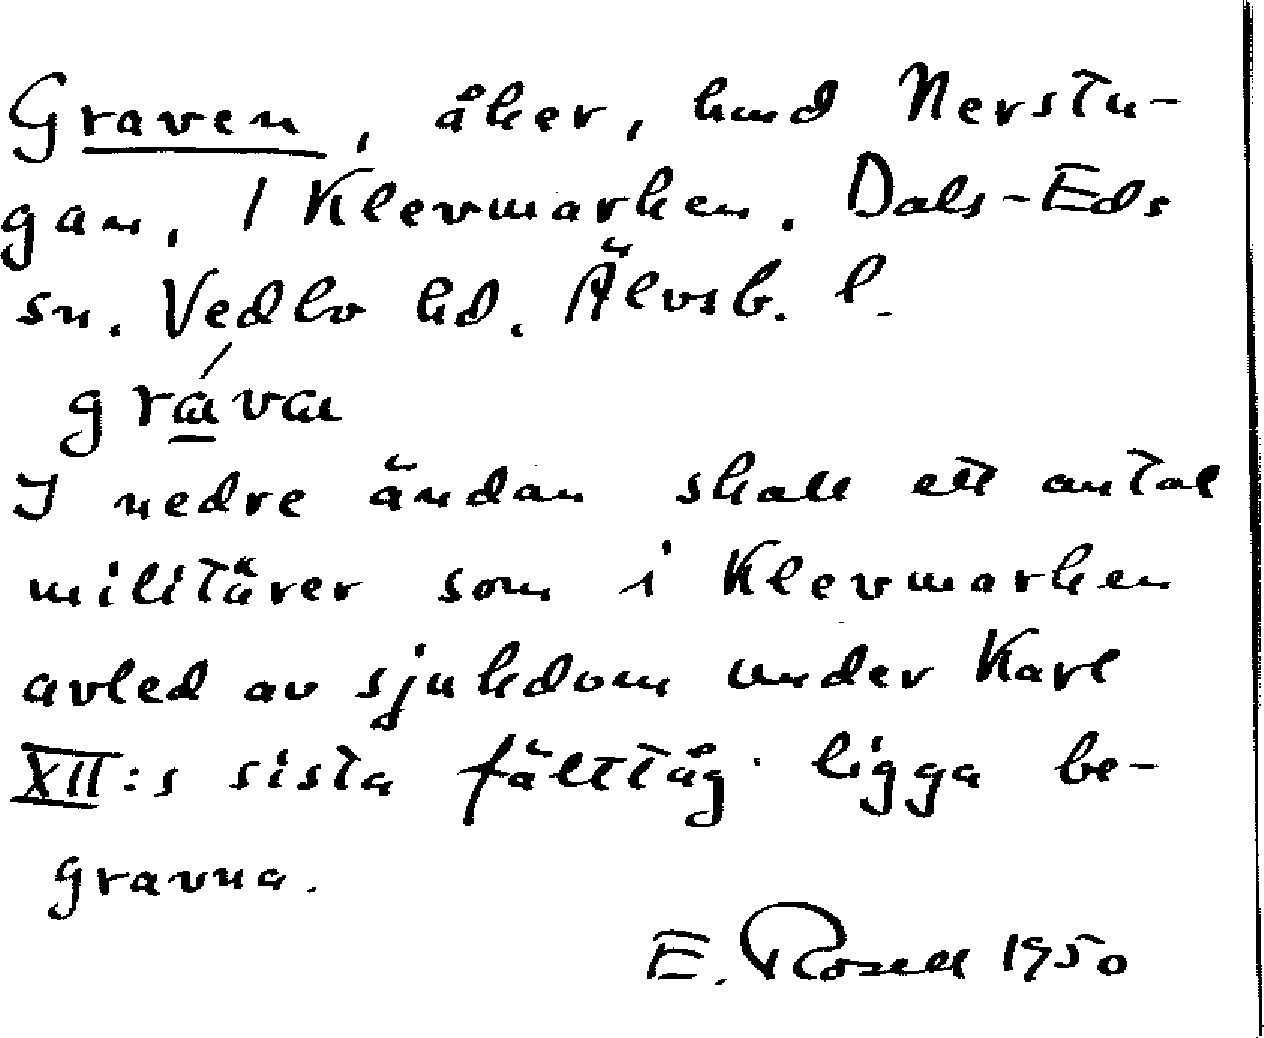 Graven, åker, hmd Nerstu-
gan, / Klevmarken. Dals-Eds
sn. Vedbo hd. Älvsb. l.
gráva
I nedre ändan skall ett antal
militärer som i Klevmarken
avled av sjukdom under Karl
XII:s sista fälttåg ligga be-
gravna.
E. Rosell 1950